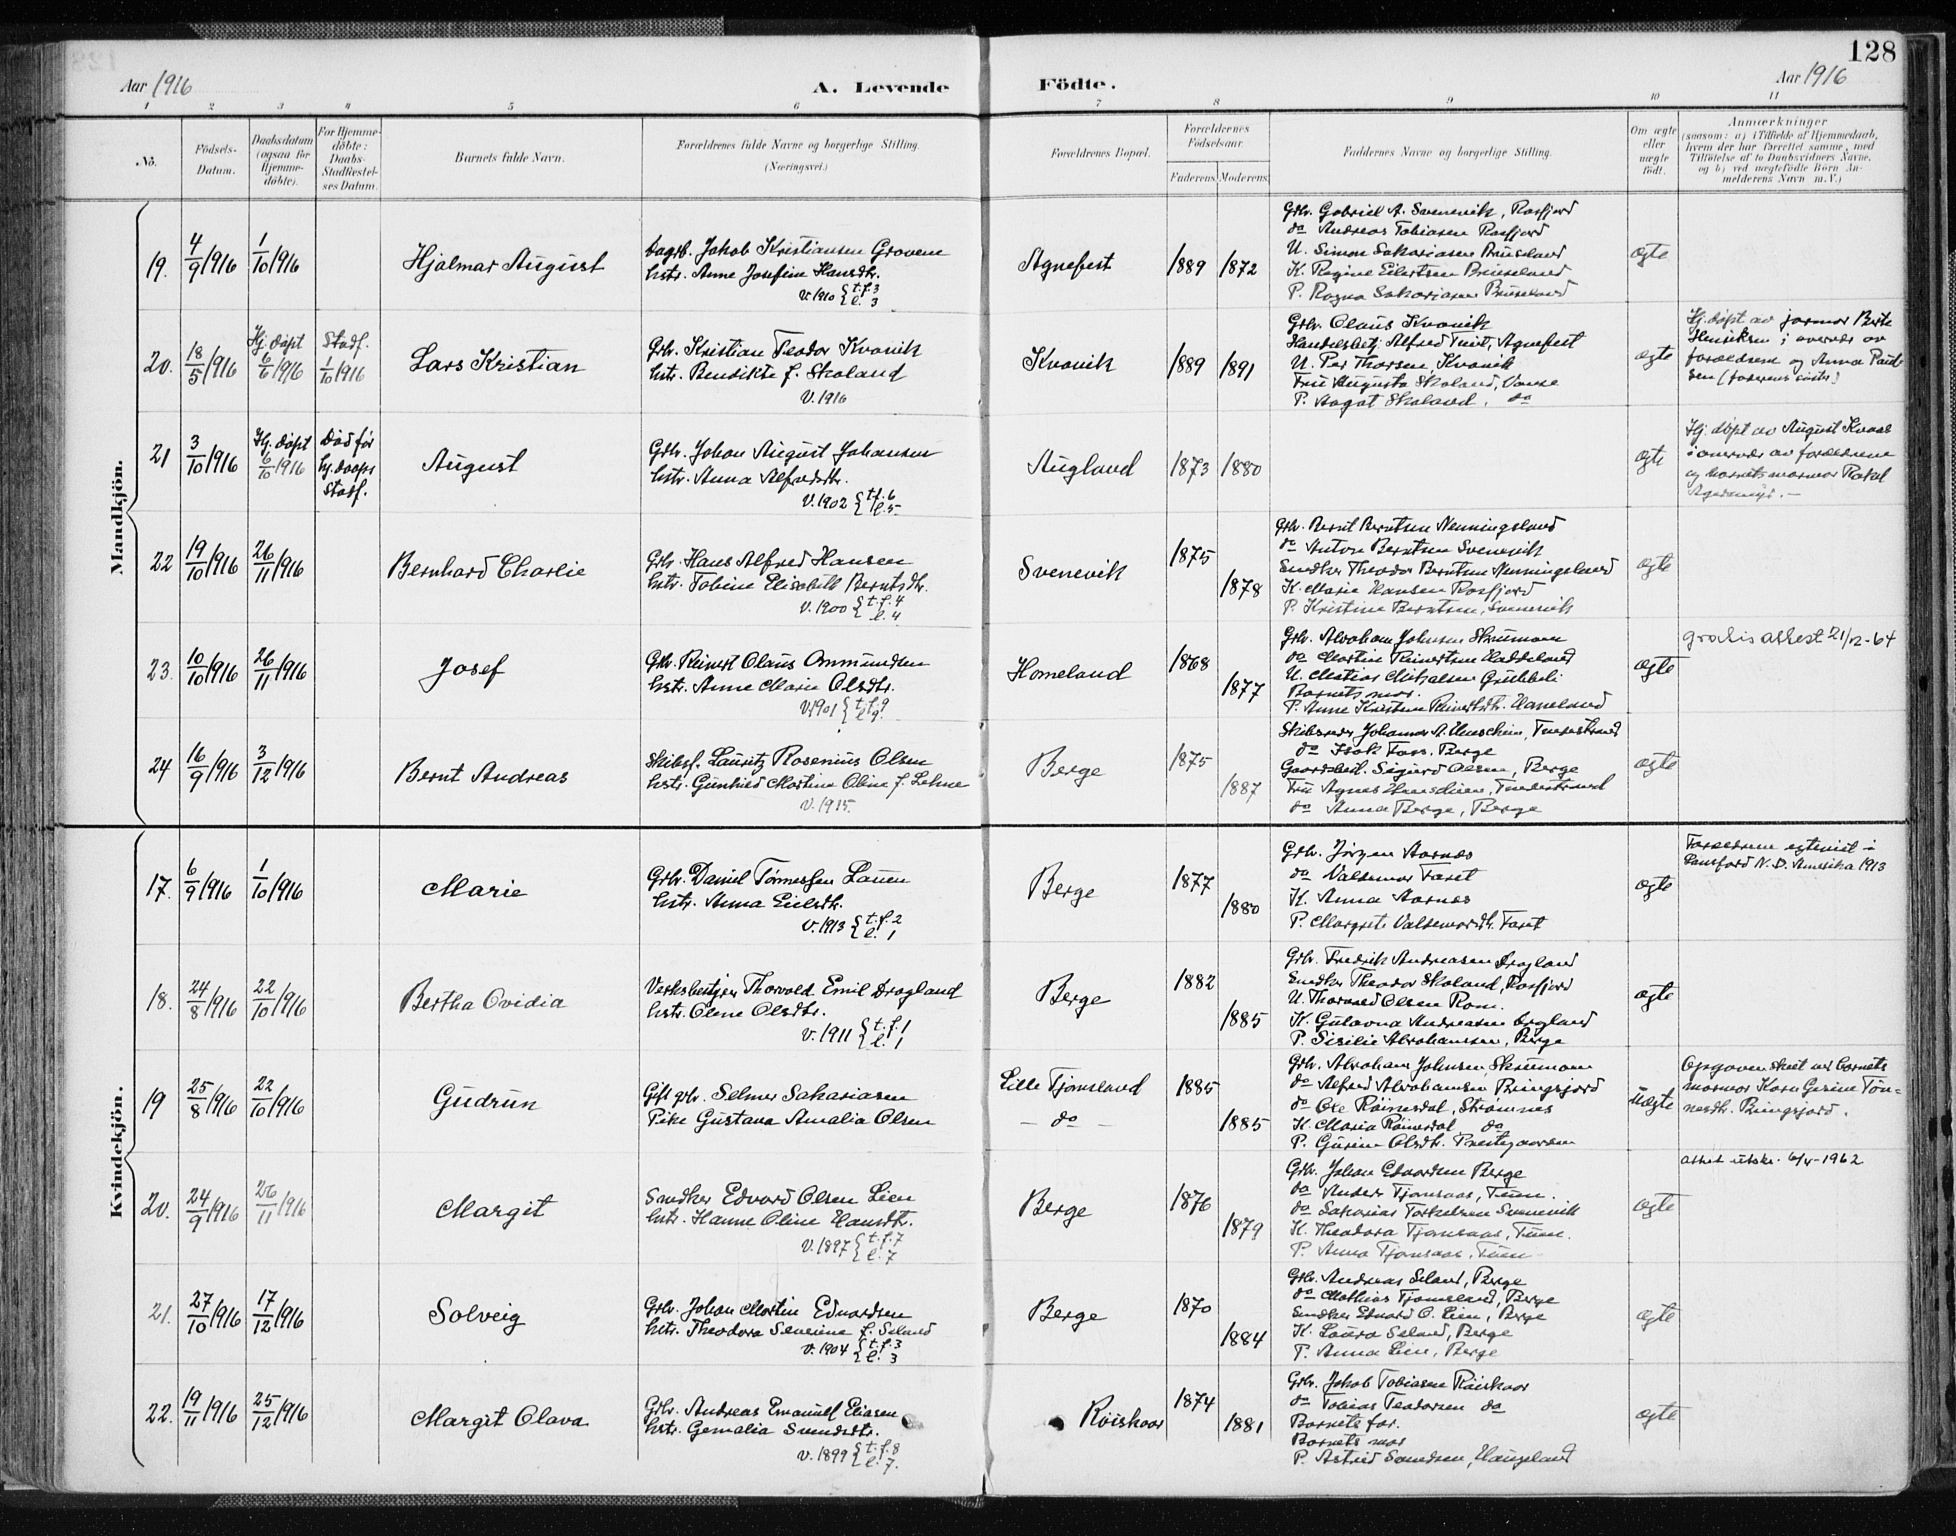 128
Aar 1916
A. Levende Födte.
Aar 1916
1 2 3 4 5 6 7 8 9 10 11
No.
Födsels-Datum.
Daabsdatum (ogsaa for Hjemme-døbte).
For Hjemme-døbte: Daabs-Stadfæstel-ses Datum.
Barnets fulde Navn.
Forældrenes fulde Navne og borgerlige Stilling. (Næringsvei.)
Forældrenes Bopæl.
Forældrenes Födselsaar.
Faderens. Moderens.
Faddernes Navne og borgerlige Stilling.
Om ægte eller uægte födt.
Anmærkninger
(saasom: a) i Tilfælde af Hjemmedaab, hvem der har forrettet samme, med Tilföielse af to Daabsvidners Navne, og b) ved uægtefödte Börn Anmelderens Navn m. V.)
Mandkjön.
19. 4/9 1916 1/10 1916 Hjalmar August
Dagsb. Jakob Kristiansen Grovene
hstr. Anne Josefine Hansdtr.
V. 1910 { t.f. 3
{ l. 3
Agnefest 1889 1872
Grbr. Gabriel A. Svenevik, Rosfjord
do Andreas Tobiasen Rosfjord
U. Simon Sakariasen Bruseland
K. Regine Eilertsen Bruseland
P. Ragna Sakariasen Bruseland
ægte
20. 18/5 1916 Hj. døpt 6/6 1916 Stadf. 1/10 1916 Lars Kristian
Grbr. Kristian Teodor Kvavik
hstr. Bendikte f. Skoland
V. 1916
Kvavik 1889 1891
Grbr. Olaus Kvavik
Handelsbetj. Alfred Tveit, Agnefest
U. Per Thorsen Kvavik
Fru Augusta Skoland, Vanse
P. Aagot Skoland, do
ægte
Hj. døpt av farmor Berte
Henriksen i overvær av
forældrene og Anna Paul-
sen (faderens søster)
21 3/10 1916 Hj. døpt 6/10 1916 Død før hj.daaps stadf. August
Grbr. Johan August Johansen
hstr. Anna Alfredsdtr.
V. 1902 { t.f. 6
{ l. 5
Augland 1873 1880
ægte
Hj. døpt av August Kvaas
i overvær av forældrene
og barnets mormor Rakel
22 19/10 1916 26/11 1916 Bernhard Charlie
Grbr. Hans Alfred Hansen
hstr. Tobine Elisabeth Berntsdtr.
V. 1900 { t.f. 4
{ l. 4
Svenevik 1875 1878
Grbr. Bernt Berntsen Nenningsland
do Anton Berntsen Svenevik
Snedker Theodor Berntsen Nenningsland
K. Marie Hansen Rosfjord
P. Kristine Berntsen, Svenevik
ægte
23. 10/10 1916 26/11 1916 Josef
Grbr. Reinert Olaus Ommundsen
hstr. Anne Marie Olsdtr.
V. 1901 { t.f. 9
{ l. 9
Homeland 1868 1877
Grbr. Abraham Johnsen Skrumoen
do Martin Reinertsen Haddeland
U. Matias Mikalsen
Barnets mor.
P. Anne Kristine Reinertsdtr. Homeland
ægte
gratis attest 21/12-64
24 16/9 1916 3/12 1916 Bernt Andreas
Skibsf. Lauritz Rosenius Olsen
hstr. Gunhild Martine Oline f. Lehne
V. 1915.
Berge 1875 1887
Skibsreder Johannes A.
do Isak Berge
Gaardbest. Sigurd Olsen, Berge
Fru Agnes
do Anna Berge, Berge
ægte
Kvindekjön.
17. 6/9 1916 1/10 1916 Marie
Grbr. Daniel Tønnessen Lauen
hstr. Anna Eilsdtr.
V. 1913 { t.f. 2
{ l. 1
Berge 1877 1880
Grbr. Jørgen Aarnes
do Valdemar Faret
K. Anna Aarnes
P. Margrete Valdemarsdtr. Faret
ægte
Forældrene egteviet i
Lansford N.D. Amerika 1913
18. 24/8 1916 22/10 1916 Bertha Ovidia
Verksbestyrer Thorvald Emil Drogland
hstr. Oline Olsdtr.
V. 1911 { t.f. 1
{ l. 1
Berge 1882 1885
Grbr. Fredrik Andreasen Drogland
Snedker Theodor Skoland, Rosfjord
U. Thorvald Olsen Rom.
K. Gulavna Andreasen Drogland
P. Sisilie Abrahamsen, Berge
ægte
19 25/8 1916 22/10 1916 Gudrun
Gift grbr. Selmer Sakariasen
Pike Gustava Amalia Olsen
Lille Tjomsland 1885
— do — 1885
Grbr. Abraham Johnsen, Skrumoen
do Alfred Abrahamsen Ringsjord
do Ole Røinesdal, Strømnes
K. Maria Røinesdal do
P. Gurine Olsdtr. Prestegaarden
Uægte
Opgaven skeet ved barnets
mormor Karn Gesine Tøn-
nesdtr. Ringsjord.
20. 24/9 1916 26/11 1916 Margit
Snedker Edvard Olsen Lien
hstr. Hanne Oline Hansdtr.
V. 1897 { t.f. 7
{ l. 7
Berge 1876 1879
Grbr. Johan Edvardsen Berge
do Anders Tjomsaas, Tuen.
do Sakarias Torkelsen Svenevik
K. Theodora Tjomsaas, Tuen.
P. Anna Tjomsaas, Tuen
ægte
attest utskr. 6/4-1962
21. 27/10 1916 17/12 1916 Solveig
Grbr. Johan Martin Edvardsen
hstr. Theodora Severine f. Seland
V. 1904 { t.f. 3
{ l. 3
Berge 1870 1884
Grbr. Andreas Seland, Berge
do Mathias Tjomsland, Berge
Snedker Edvard O. Lien, Berge
K. Laura Seland, Berge
P. Anna Lien, Berge
ægte
22. 19/11 1916 25/12 1916 Margit Olava
Grbr. Andreas Emanuel Eliasen
hstr. Gemalia Svendsdtr.
V. 1899 { t.f. 8
{ l. 7.
Røiskaar 1874 1881
Grbr. Jakob Tobiasen Røiskaar
do Tobias Teodorsen do
Barnets far.
Barnets mor
P. Astrid Svendsen, Haugeland
ægte